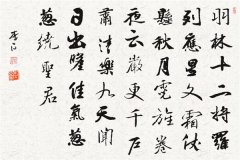 羽林十二将
列應星文霜仗
懸秋月霓旌卷
夜云嚴更千戶
肅清樂九天聞
日出瞻佳氣蔥
蔥繞聖君